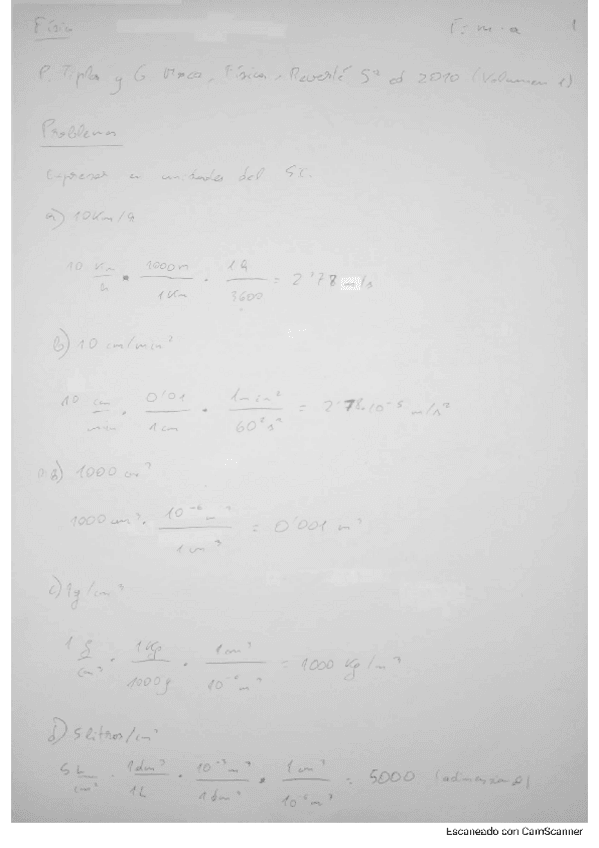 Física F = m · a 1
P. Tipler y G. Mosca, Física, Reverté 5ª ed 2010 (Volumen 1)
Problemas
Expresar en unidades del S.I.
a) 10 Km/h
10 Km/h · 1000 m/1 Km · 1 h/3600 = 2'78 m/s
b) 10 cm/min²
10 cm/min · 0'01/1 cm · 1 min²/60² s² = 2'78·10⁻⁵ m/s²
1000 cm³
1000 cm³ · 10⁻⁶ m³/1 cm³ = 0'001 m³
c) 1g/cm³
1 g/cm³ · 1 Kg/1000 g · 1 cm³/10⁻⁶ m³ = 1000 Kg/m³
d) 5 litros/cm³
5 L/cm³ · 1 dm³/1 L · 10⁻³ m³/1 dm³ · 1 cm³/10⁻⁶ m³ = 5000 (adimensional)
Escaneado con CamScanner